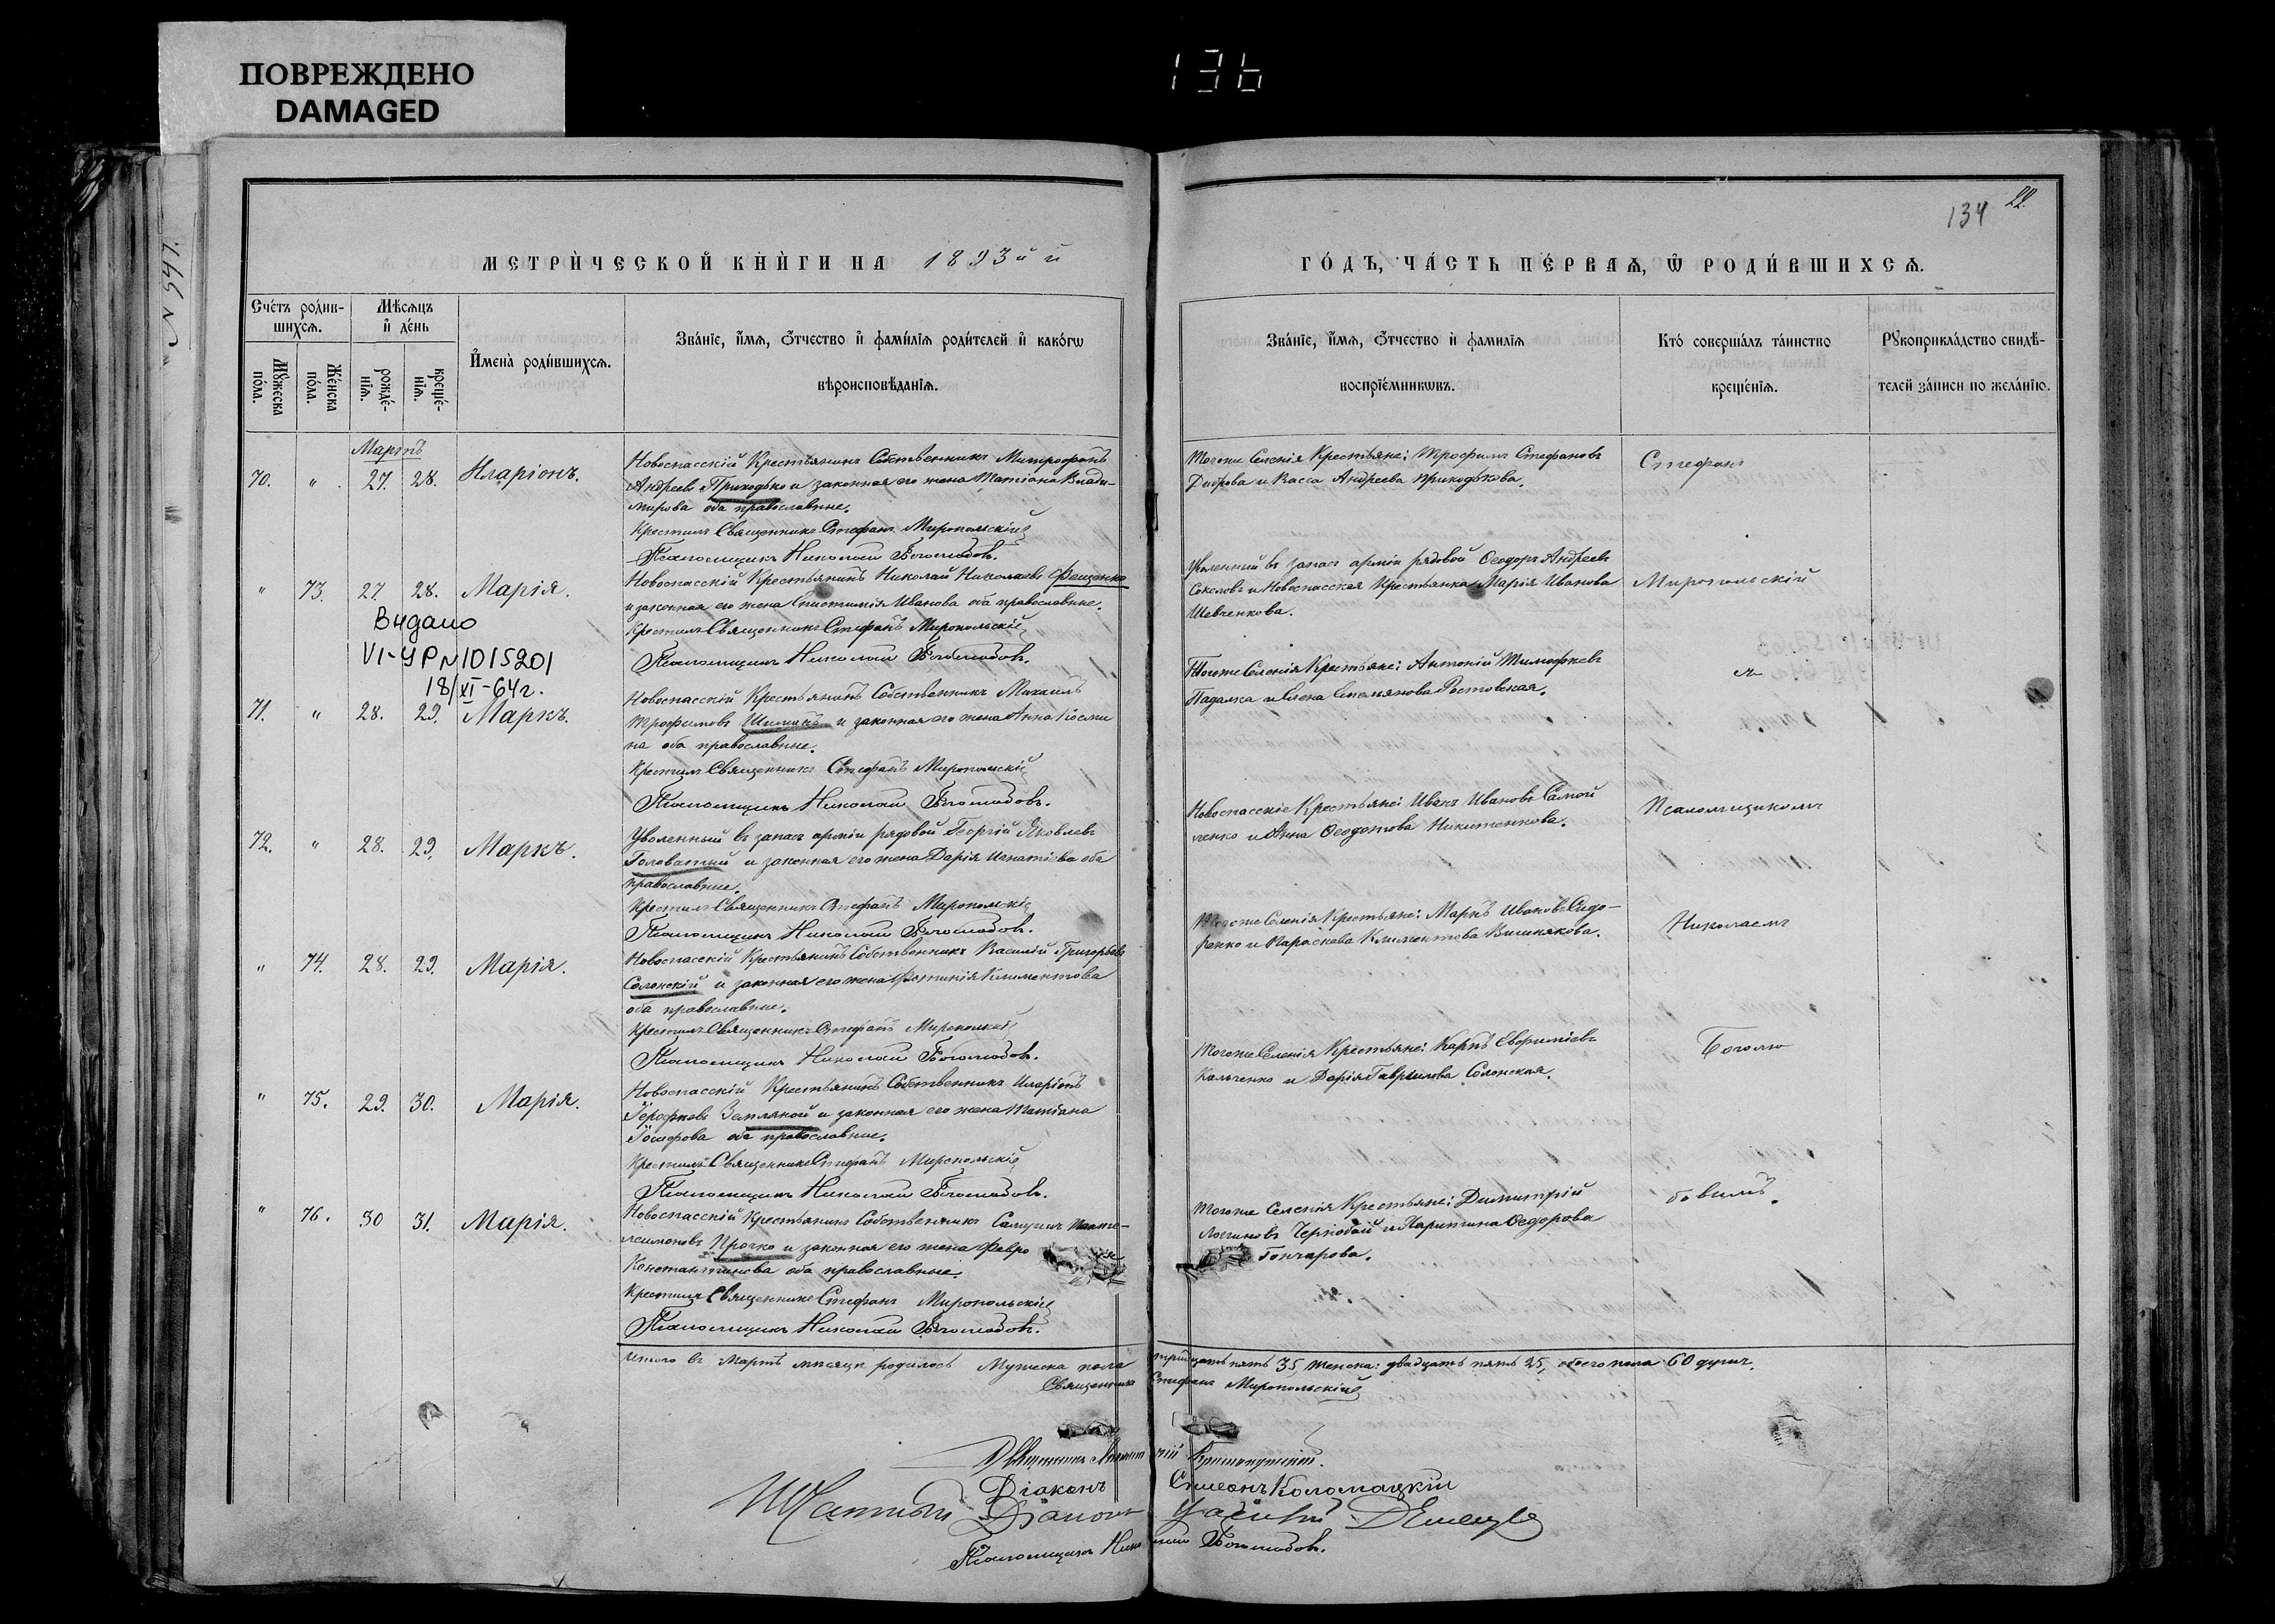 ПОВРЕЖДЕНО
DAMAGED
136
134 22.
МЕТРИ́ЧЕСКОЙ КНИ́ГИ НА 1893й
ГО́ДЪ, ЧА́СТЬ ПЕ́РВАѦ, Ѡ РОДИ́ВШИХСѦ.
Сче́тъ роди́в-
шихсѧ.
Мѣ́сѧцъ
и҆ де́нь
Мꙋ́жеска
по́ла.
Же́нска
по́ла.
рожде́-
нїѧ.
креще́-
нїѧ.
И҆мена̀ роди́вшихсѧ.
Зва́нїе, и҆́мѧ, ѻ҆́тчество и҆ фами́лїѧ роди́телей и҆ како́гѡ
вѣроисповѣ́данїѧ.
Зва́нїе, и҆́мѧ, ѻ҆́тчество и҆ фами́лїѧ
воспрїе́мникѡвъ.
Кто́ соверша́лъ та́инство
креще́нїѧ.
Рꙋкоприкла́дство свидѣ́-
телей за́писи по жела́нїю.
Мартъ
70. " 27. 28. Иларіонъ.
Новоспасскій Крестьянинъ Собственникъ Митрофанъ
Андреевъ Приходько и законная его жена Татіана Влади-
мирова оба православные.
Крестилъ Священникъ Стефанъ Миропольскій
Псаломщикъ Николай Боголюбовъ.
Тогоже Селенія Крестьяне: Трофимъ Стефановъ
Диброва и Васса Андреева Приходькова.
Стефанъ
" 73. 27. 28. Марія.
Новоспасскій Крестьянинъ Николай Николаевъ Фещенко
и законная его жена Епистимія Иванова оба православные.
Крестилъ Священникъ Стефанъ Миропольскій
Псаломщикъ Николай Боголюбовъ.
Уволенный въ запасъ арміи рядовой Феодоръ Андреевъ
Соколовъ и Новоспасская Крестьянка Марія Иванова
Шевченкова.
Миропольскій
Видано
VI-УР N1015201
18/XI-64г.
71. " 28. 29. Маркъ.
Новоспасскій Крестьянинъ Собственникъ Михаилъ
Трофимовъ и законная его жена Анна Косми
на оба православные.
Крестилъ Священникъ Стефанъ Миропольскій
Псаломщикъ Николай Боголюбовъ.
Тогоже Селенія Крестьяне: Антоній Тимофеевъ
Падалка и Елена Емельянова Ростовская.
72. " 28. 29. Маркъ.
Уволенный въ запасъ арміи рядовой Георгій Яковлевъ
Головатый и законная его жена Дарія Игнатіева оба
православные.
Крестилъ Священникъ Стефанъ Миропольскій
Псаломщикъ Николай Боголюбовъ.
Новоспасскіе Крестьяне: Иванъ Ивановъ Самой
ленко и Анна Феодотова Никитенкова.
Псаломщикомъ
" 74. 28. 29. Марія.
Новоспасскій Крестьянинъ Собственникъ Василій Григорьевъ
Солонскій и законная его жена Фотинія Климентова
оба православные.
Крестилъ Священникъ Стефанъ Миропольскій
Псаломщикъ Николай Боголюбовъ.
Тогоже Селенія Крестьяне: Маркъ Ивановъ Сидо-
ренко и Параскева Климентова Вишнякова.
Николаемъ
" 75. 29. 30. Марія.
Новоспасскій Крестьянинъ Собственникъ Иларіонъ
Іерофеевъ Земляной и законная его жена Татіана
Іосифова оба православные.
Крестилъ Священникъ Стефанъ Миропольскій
Псаломщикъ Николай Боголюбовъ.
Тогоже Селенія Крестьяне: Карпъ Евфиміевъ
Кальченко и Дарія Гавриилова Солонская.
Боголю
" 76. 30 31. Марія.
Новоспасскій Крестьянинъ Собственникъ Самуилъ Панте-
леимоновъ Прочко и законная его жена Февро
Константинова оба православные.
Крестилъ Священникъ Стефанъ Миропольскій
Псаломщикъ Николай Боголюбовъ.
Тогоже Селенія Крестьяне: Димитрій
Логиновъ и Харитина Федорова
Гончарова.
бовымъ.
Итого въ Мартѣ мѣсяцѣ родилось Мужеска пола тридцать пять 35, Женска: двадцать пять 25, обоего пола 60 душъ.
Священникъ Стефанъ Миропольскій
Священникъ
Діаконъ Симеонъ Коломацкій
Діаконъ
Псаломщикъ Николай Боголюбовъ.